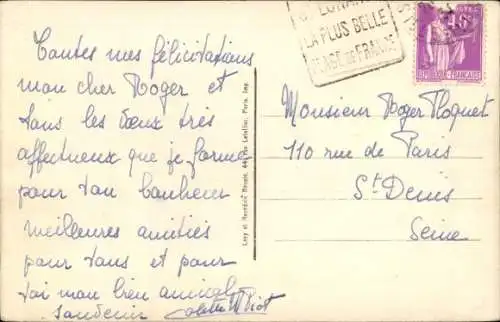 Toutes mes félicitations
mon cher Roger et
tous les vœux très
affectueux que je forme
pour ton bonheur
meilleures amitiés
pour tous et pour
toi mon bien amical
souvenir
LA PLUS BELLE
PLAGE DE FRANCE
REPUBLIQUE FRANÇAISE
Monsieur Roger Floquet
110 rue de Paris
St Denis
Seine